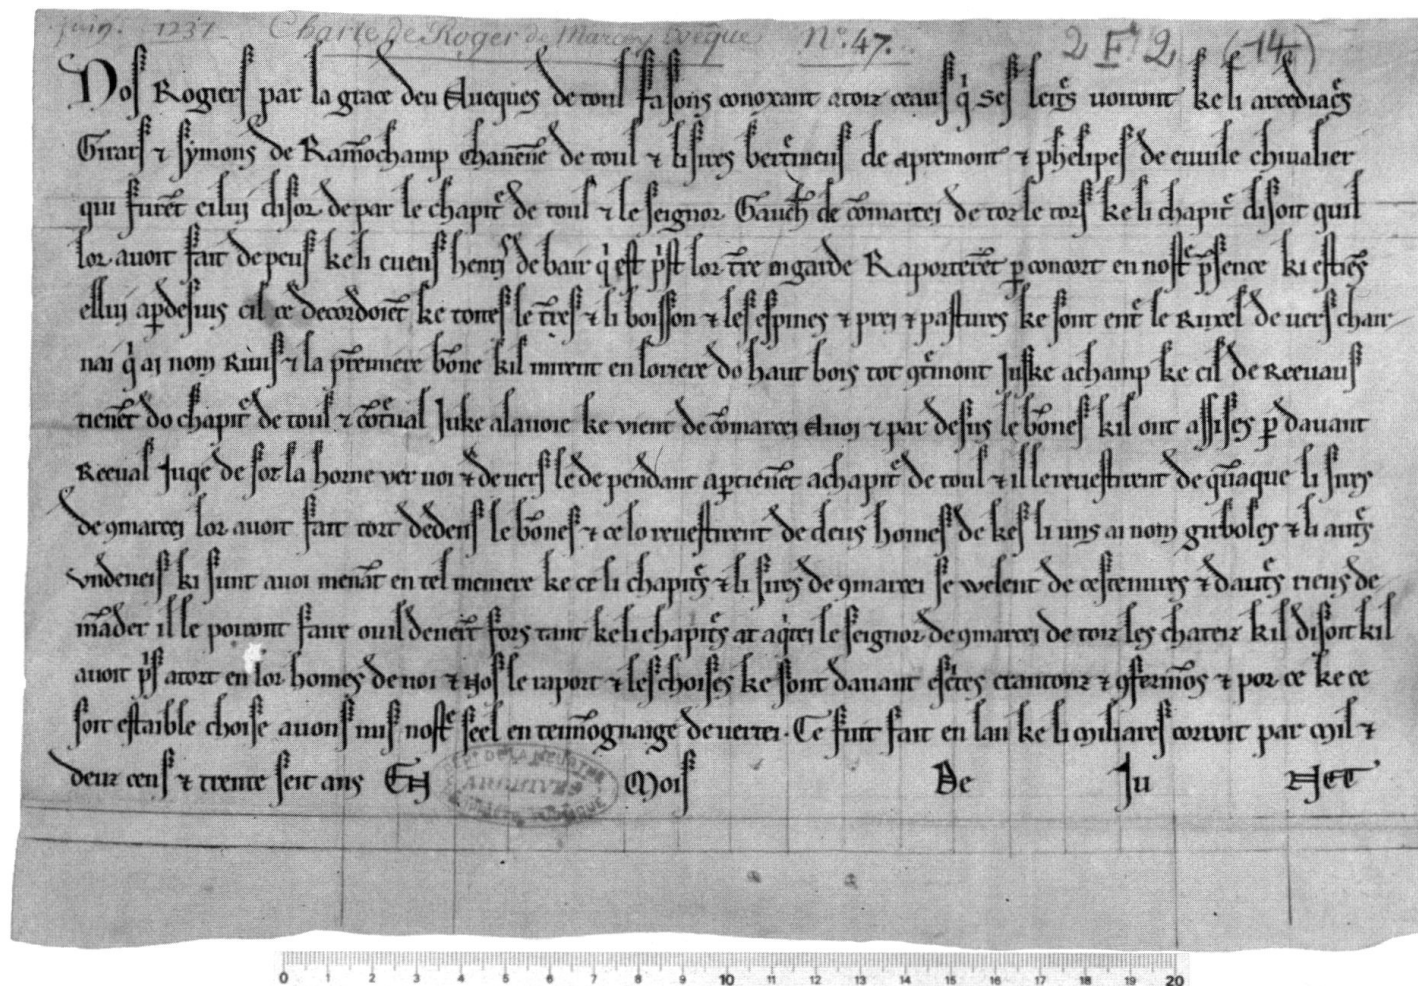 juin. 1237 Charte de Roger de Marcey Evêque No. 47. 2 F. 2 (14)
Nos Rogiers par la grace deu Aueques de toul fasons conoxant atoiz ceaus q̍ ses leitrs uoiront ke li arcediacrs
Girars ⁊ symons de Ramōchamp chanenne de toul ⁊ li sires bertimeus de apremont ⁊ phelipes de euuile chiualier
qui furēt eilui disor de par le chapitr de toul ⁊ le seignor Gauch̄ de cōmarcei de tor le tors ke li chapitr disoit quil
lor auoit fait de peus ke li cuens henris de bair q̍ est p̍st lor t̄re en garde Raporterēt p concort en nostr p̄sence ki esties
ellui apdesius cil ce decordoiēt ke totes le t̄res ⁊ li boisson ⁊ les espines ⁊ prei ⁊ pastures ke sont entr le Ruxel de uers chau-
nai q̍ ai nom Riuis ⁊ la p̄remiere bōne kil mirent en loriere do haut bois tot ꝯtrmont Juske achamp ke cil de Receuaus
tienēt do chapitr de toul ⁊ cōtrual Juke alauoie ke uient de cōmarcei Auoi ⁊ par desius le bōnes kil ont assises p dauant
Receual Juqe de sor la horne uer uoi ⁊ de uers le de pendant aptienēt achapitr de toul ⁊ il le reuestirent de quāque li sires
de ꝯmarcei lor auoit fait tort dedens le bōnes ⁊ ce lo reuestirent de deus homes de kes li uns ai nom giriboles ⁊ li autrs
vndeneis ki sunt auoi menāt en tel meniere ke ce li chapitrs ⁊ li sires de ꝯmarcei se welent de cestenures ⁊ dautrs riens de
māder il le poiront faire ou il deuerēt fors tant ke li chapitrs at aq̍tei le seignor de ꝯmarcei de toiz les chateiz kil disoit kil
auoit p̍s atort en lor homes de uoi ⁊ Nos le raport ⁊ les choises ke sont dauant escrites crantonz ⁊ ꝯfermōs ⁊ por ce ke ce
soit estaible choise auons mis nostr seel en tenmōgnaige de uertei. Ce fuit fait en lan ke li miliares corroit par mil ⁊
deuz cens ⁊ trente seit ans EN Mois De Ju NET
ARCHIVES
0 1 2 3 4 5 6 7 8 9 10 11 12 13 14 15 16 17 18 19 20